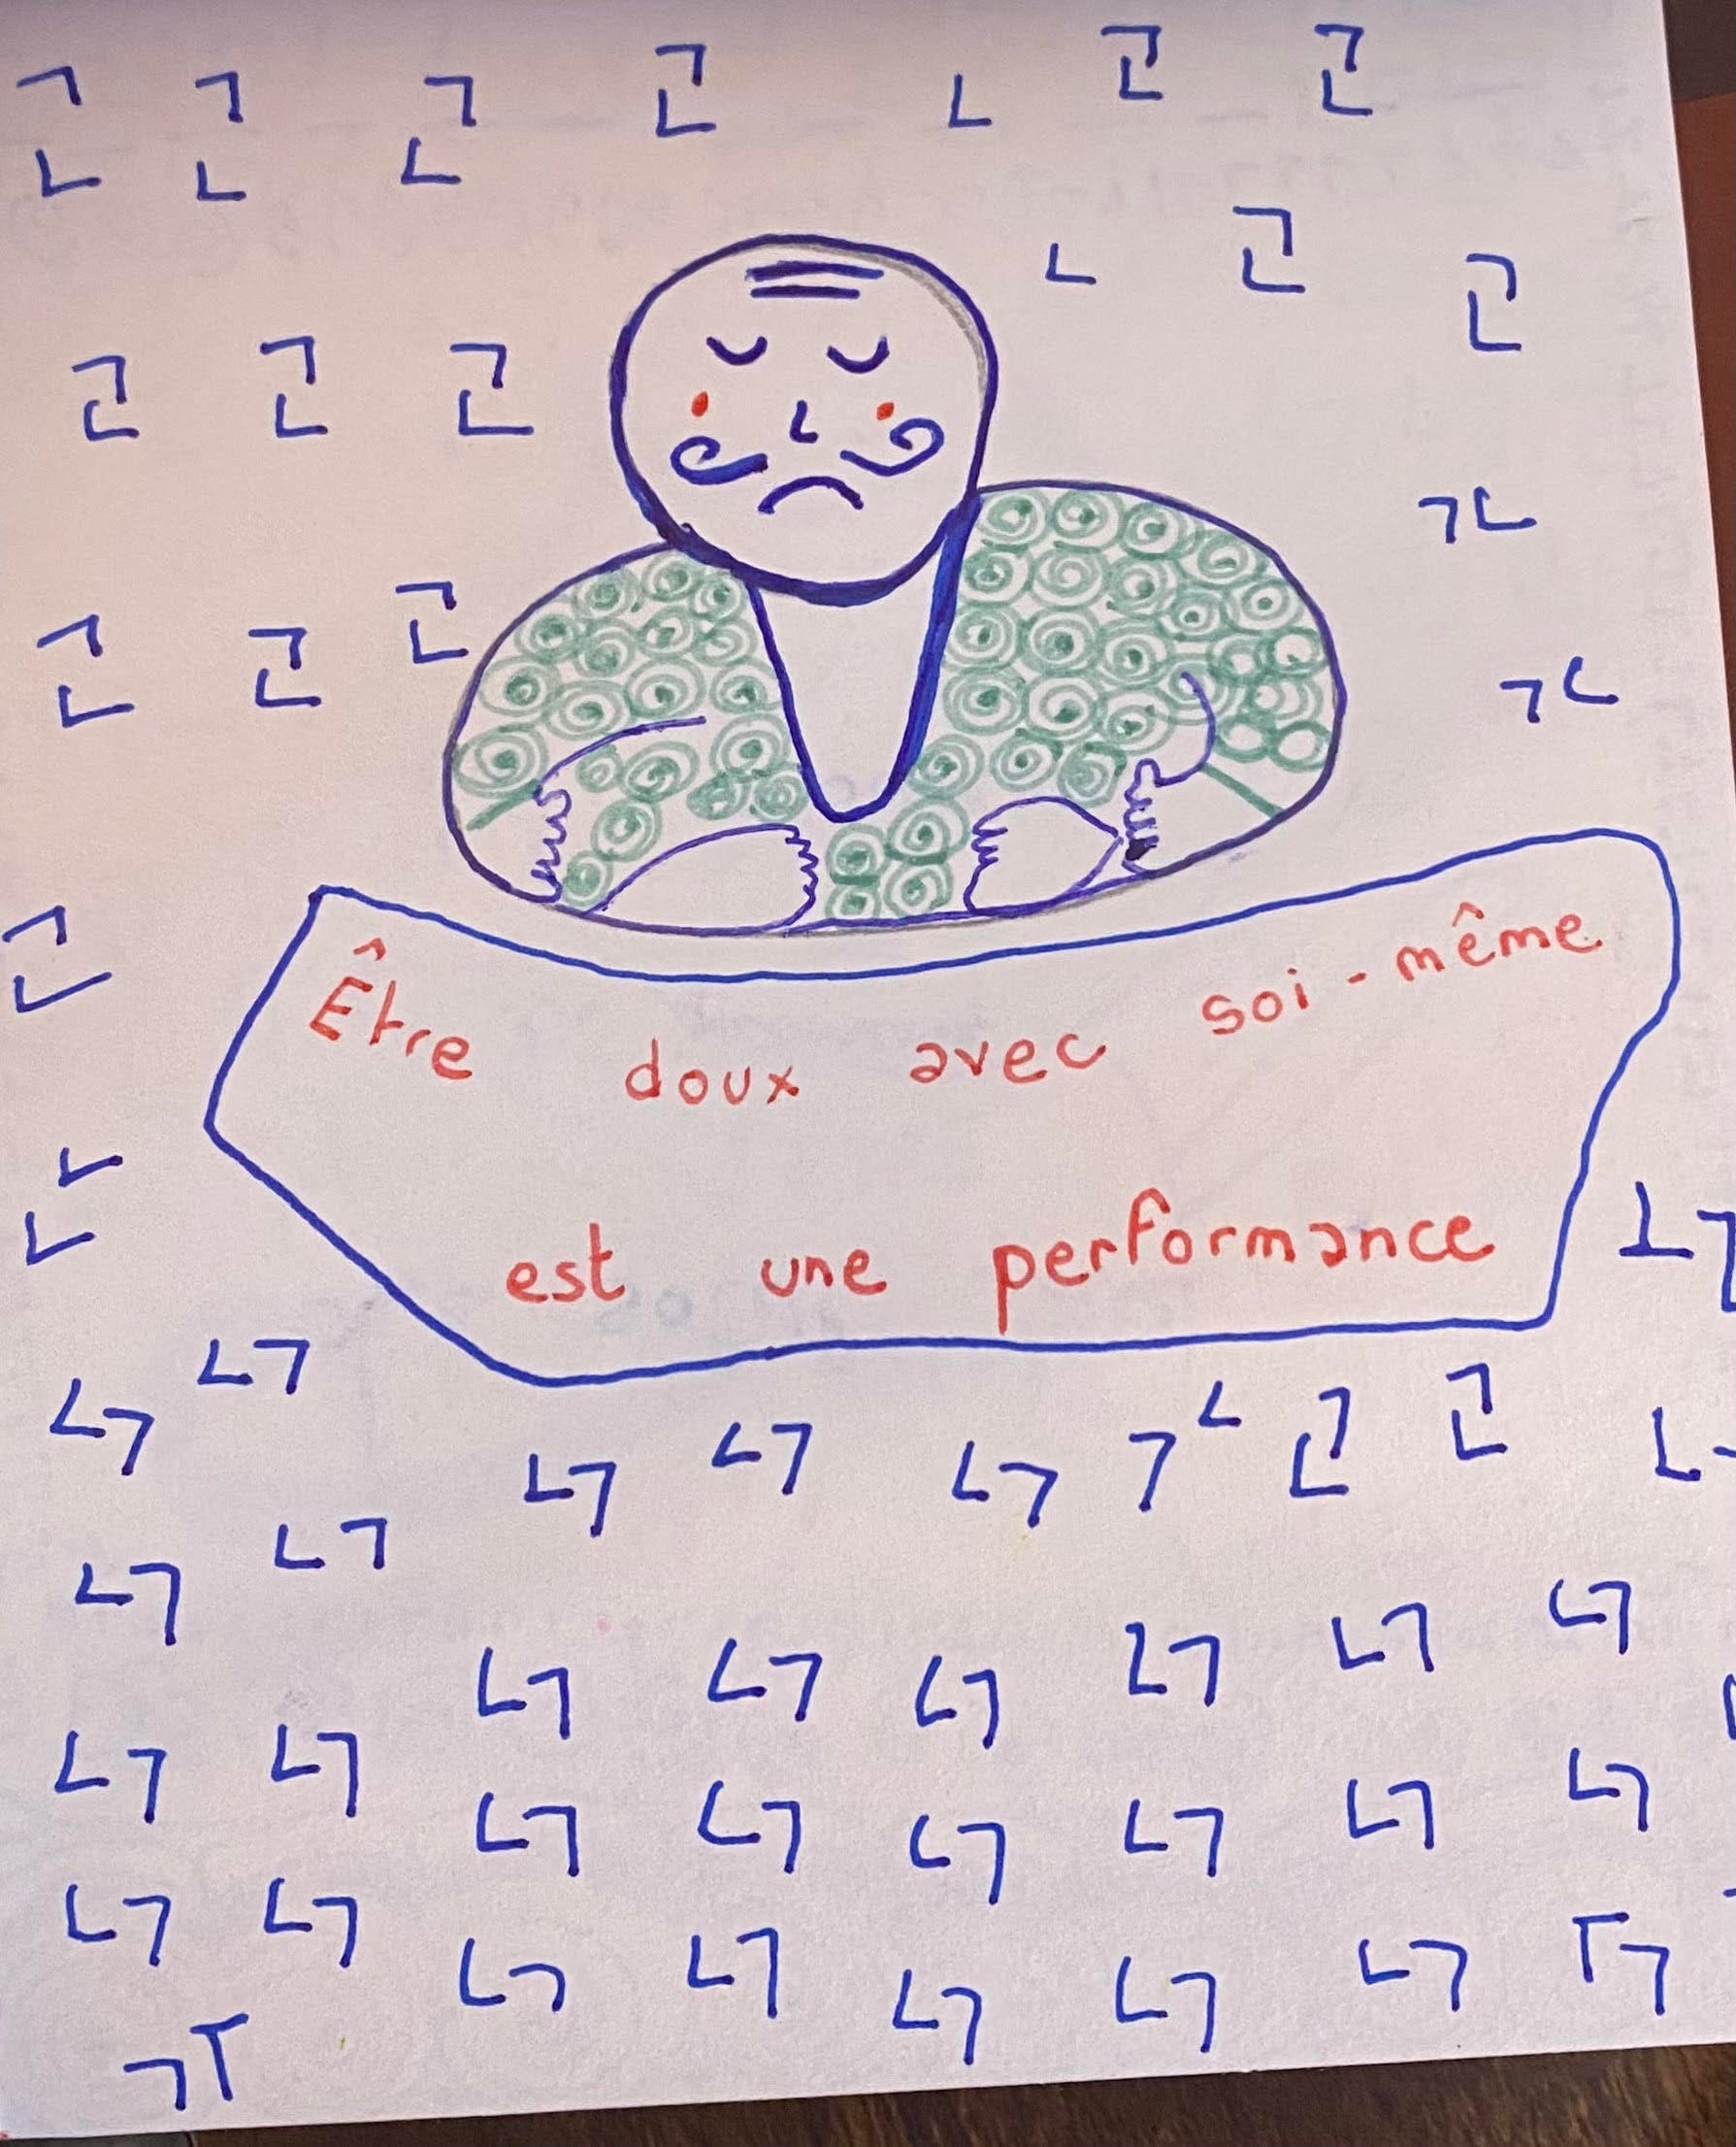 Être doux avec soi-même
est une performance